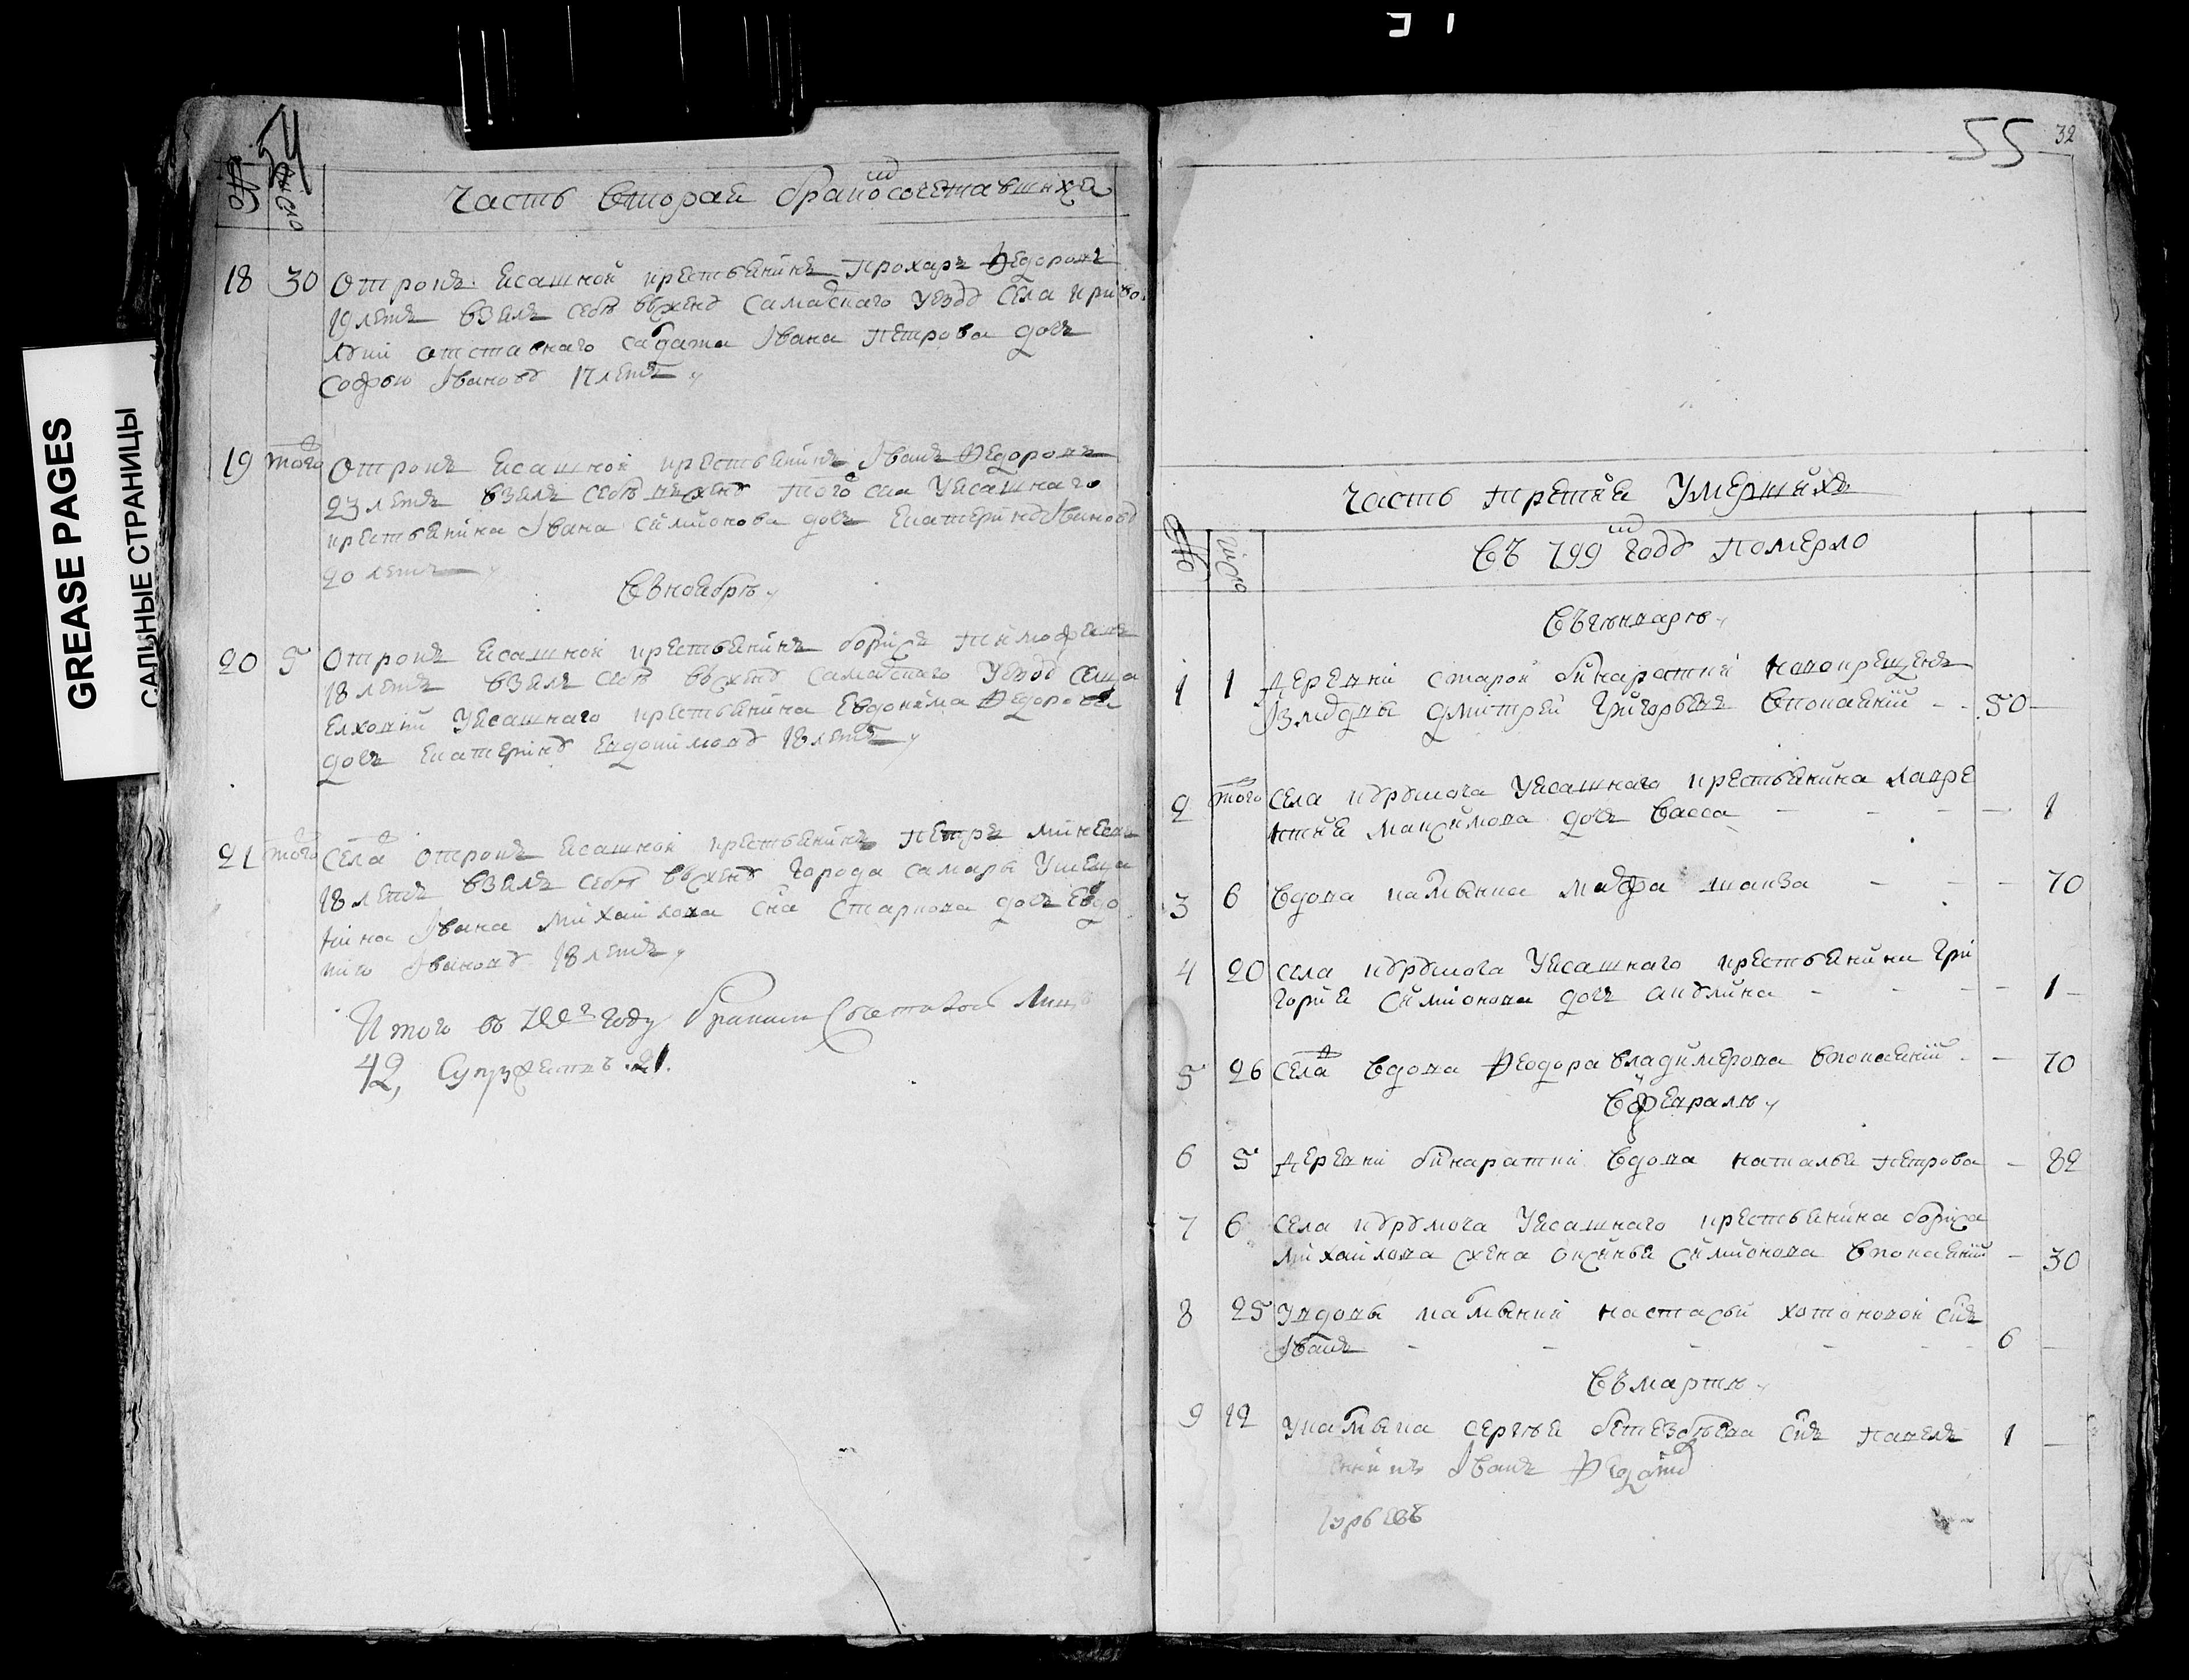 GREASE PAGES
САЛЬНЫЕ СТРАНИЦЫ
54
№
число
Часть вторая бракосочетавшихся
18 30 Отрокъ ясашной крестьянинъ Прохаръ Федоровъ
19 летъ взялъ себѣ въ жену Самарскаго уезду села
отставнаго салдата Ивана Петрова дочь
Софью Иванову 17 летъ
19 того Отрокъ ясашной крестьянинъ Иванъ Федоровъ
23 летъ взялъ себѣ въ жену того села у ясашнаго
крестьянина Ивана Симионова дочь Екатерину Иванову
20 летъ
Въ ноябрѣ
20 5 Отрокъ ясашной крестьянинъ Борисъ Тимофеевъ
18 летъ взялъ себѣ въ жену Самарскаго уезду селца
Елховки у ясашнаго крестьянина Евдокима Федорова
дочь Екатерину Евдокимову 18 летъ
21 того села отрокъ ясашной крестьянинъ Петръ Минеевъ
18 летъ взялъ себѣ въ жену города Самары у меща
нина Ивана Михайлова сна Старкова дочь Евдо
кию Иванову 18 летъ
Итого въ 799 году браком
42, Супружествъ 21.
55 32
Часть третия умершихъ
№
число
Въ 799 году померло
Въ генварѣ
1 1 Деревни Старой Бинаратки новокрещенъ
из мордвы Дмитрей Григорьевъ в покаянии 50
2 того села Курумоча у ясашнаго крестьянина Лавре
нтия Максимова дочь Васса 1
3 6 Вдова калмычка Марфа 70
4 20 села Курумоча у ясашнаго крестьянина Гри
гория Симионова дочь Акулина 1
5 26 села вдова Феодора Владимерова в покаянии 70
Въ феврале
6 5 Деревни Бинаратки вдова Наталья Петрова 82
7 6 села Курумоча у ясашнаго крестьянина Бориса
Михайлова жена Оксинья Симионова в покаянии 30
8 25 У вдовы калмычки Настасьи Хотоновой снъ
Иванъ 6
Въ марте
9 12 У калмыка Сергея снъ Павелъ 1
Иванъ